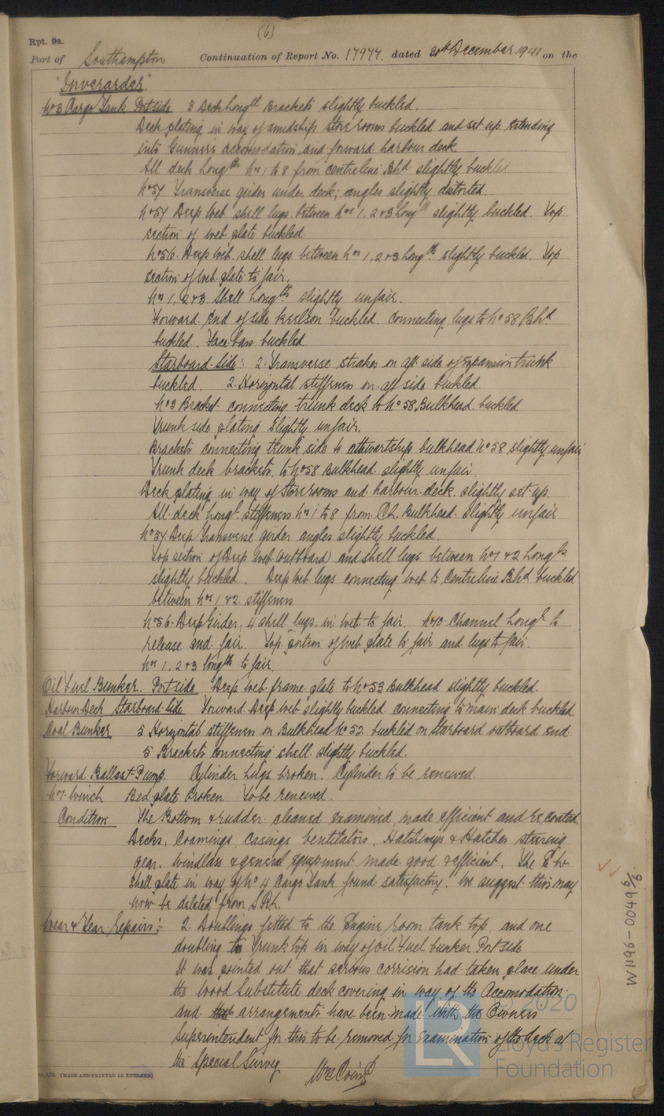 (6)
Rpt. 9a.
Port of Southampton Continuation of Report No. 17977. dated 30th December 1941 on the
"Inverarder"
No 3 Cargo Tank Portside 3 Deck Longtl Brackets slightly buckled.
Deck plating in way of amidship store rooms buckled and set up extending
into Gunners accomodation and forward harbour deck.
All deck Longtls Nos 1 to 8 from centreline Bhd slightly buckled
No 57 Transverse girder under deck; angles slightly distorted.
No 57 Deep Web shell lugs between Nos 1. 2 & 3 Longtls slightly buckled. Top
section of web plate buckled.
No 56. Deep Web. shell lugs between Nos 1. 2 & 3 Longtls slightly buckled. Top
section of web plate to fair.
Nos 1. 2 & 3 Shell Longtls slightly unfair.
Forward end of side keelson buckled. connecting lugs to No 58 Bhd
buckled. Face bar buckled
Starboard Side: 2 Transverse strakes on aft side of Expansion trunk
buckled. 2 Horizontal stiffeners on aft side buckled.
No 3 Bracket connecting trunk deck to No 58 Bulkhead buckled
Trunk side plating slightly unfair.
Brackets connecting trunk side to athwartship bulkhead No 58 slightly unfair
Trunk deck brackets to No 58 Bulkhead slightly unfair
Deck plating in way of storerooms and harbour deck slightly set up.
All deck Longtl stiffeners Nos 1 to 8 from C.L. Bulkhead slightly unfair
No 57 Deep Transverse girder angles slightly buckled.
Top section of Deep Web (outboard) and shell lugs between Nos 1 & 2 Longtls
slightly buckled. Deep Web lugs connecting web to Centreline Bhd buckled
between Nos 1 & 2 stiffeners
No 56. Deep Girder, 4 shell lugs in web to fair. Channel Longtl to
release and fair. Top portion of web plate to fair and lugs to fair.
Nos 1. 2 & 3 longtls to fair.
Oil Fuel Bunker. Portside Deep web frame plate to No 53 Bulkhead slightly buckled.
Harbour Deck Starboard Side Forward Deep web slightly buckled connecting to main deck buckled
Coal Bunker 5 Horizontal stiffeners on Bulkhead No 52 buckled on Starboard outboard end
5 Brackets connecting shell slightly buckled.
Forward Ballast Pump. Cylinder lugs broken. Cylinder to be renewed
No 7 Winch Bed plate broken to be renewed.
Condition The Bottom & rudder cleaned examined, made efficient and recoated
Decks, Coamings, Casings, Ventilators, Hatchways & Hatches steering
gear. windlass & general equipment made good & efficient. The
shell plate in way of No 4 Cargo Tank found satisfactory. We suggest this may
now be deleted from S.R.L.
Wear & Tear Repairs:- 2. Doublings fitted to the Engine room tank top and one
doubling to Trunk top in way of oil fuel bunker Portside
It was pointed out that serious corrision had taken place under
the wood substitute deck covering in way of the Accomodation
and arrangements have been made with the Owners
Superintendent for this to be removed for examination of the deck at
the Special Survey
(MADE AND PRINTED IN ENGLAND)
W1196-0049 6/6
LR
2020
Lloyd's Register
Foundation